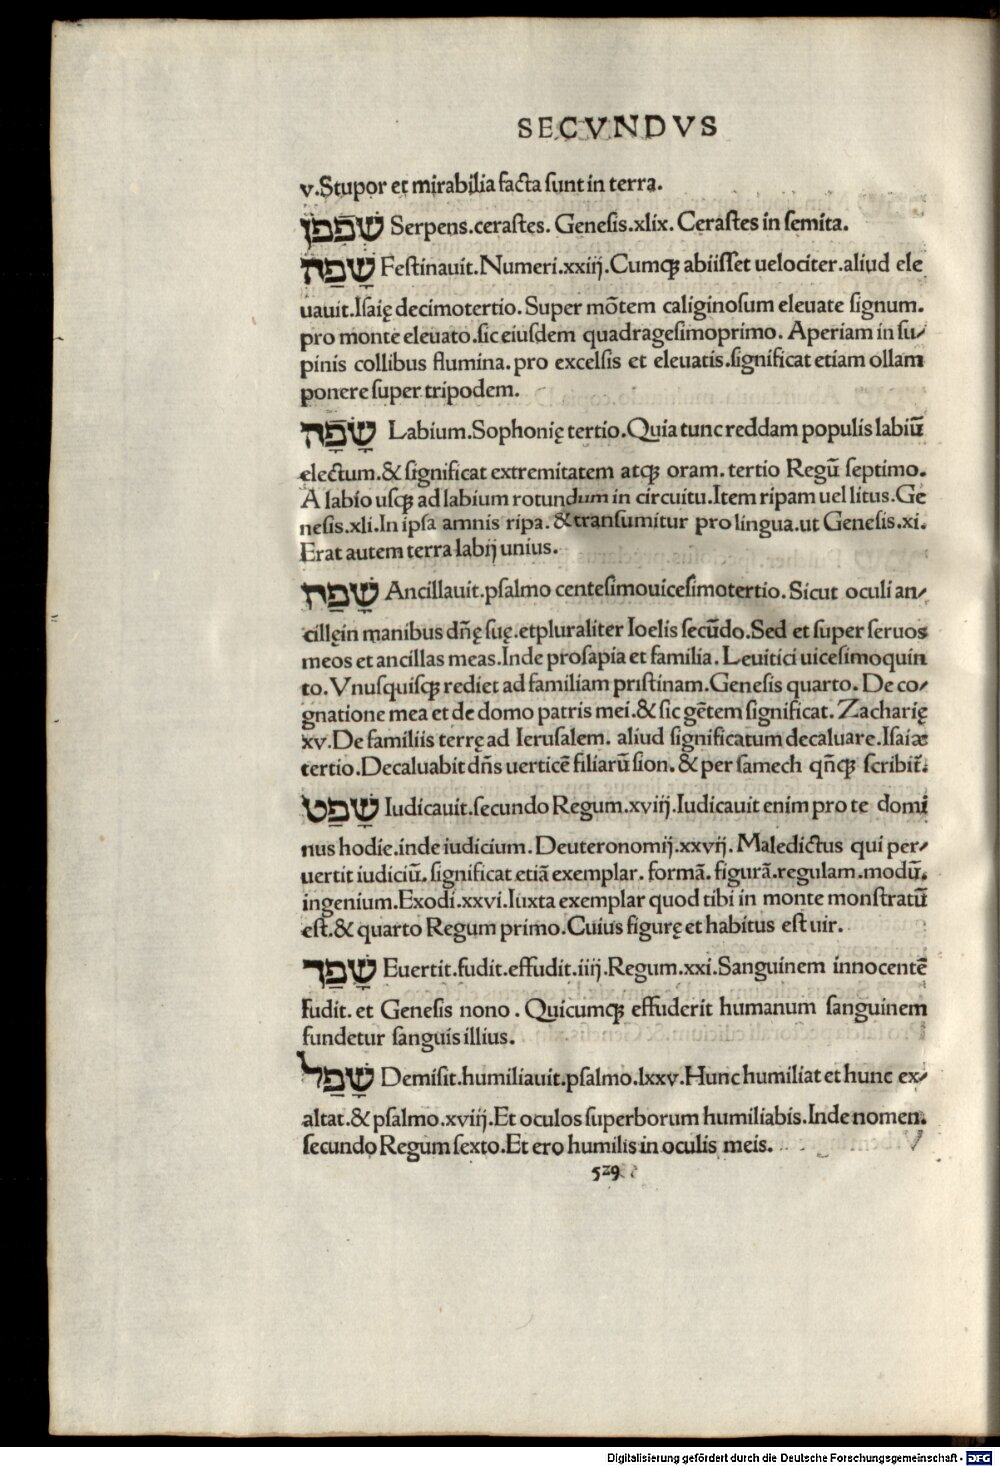 SECVNDVS
v.Stupor et mirabilia facta sunt in terra.
שְׁפִפֹן Serpens.cerastes. Genesis.xlix. Cerastes in semita.
שָׁפַה Festinauit.Numeri.xxiij.Cumqꝫ abiisset uelociter.aliud ele
uauit.Isaię decimotertio. Super mōtem caliginosum eleuate signum.
pro monte eleuato.sic eiusdem quadragesimoprimo. Aperiam in su⸗
pinis collibus flumina.pro excelsis et eleuatis.significat etiam ollam
ponere super tripodem.
שָׂפָה Labium.Sophonię tertio.Quia tunc reddam populis labiū
electum.& significat extremitatem atqꝫ oram. tertio Regū septimo.
A labio usqꝫ ad labium rotundum in circuitu.Item ripam uel litus.Ge
nesis.xli.In ipsa amnis ripa. & transumitur pro lingua.ut Genesis.xi.
Erat autem terra labij unius.
שָׁפַח Ancillauit.psalmo centesimouicesimotertio.Sicut oculi an⸗
cillęin manibus dn̄ę suę.etpluraliter Ioelis secūdo.Sed et super seruos
meos et ancillas meas.Inde prosapia et familia. Leuitici uicesimoquin
to. Vnusquisqꝫ rediet ad familiam pristinam.Genesis quarto. De co⸗
gnatione mea et de domo patris mei.& sic gētem significat. Zacharię
xv.De familiis terrę ad Ierusalem. aliud significatum decaluare.Isaiæ
tertio.Decaluabit dn̄s uerticē filiarū sion. & per samech qn̄qꝫ scribit̄.
שָׁפַט Iudicauit.secundo Regum.xviij.Iudicauit enim pro te domi
nus hodie.inde iudicium. Deuteronomij.xxvij. Maledictus qui per⸗
uertit iudiciū. significat etiā exemplar. formā. figurā.regulam.modū.
ingenium.Exodi.xxvi.Iuxta exemplar quod tibi in monte monstratū
est.& quarto Regum primo.Cuius figurę et habitus est uir.
שָׁפַך Euertit.fudit.effudit.iiij.Regum.xxi.Sanguinem innocentē
fudit. et Genesis nono . Quicumqꝫ effuderit humanum sanguinem
fundetur sanguis illius.
שָׁפַל Demisit.humiliauit.psalmo.lxxv.Hunc humiliat et hunc ex⸗
altat.& psalmo.xviij.Et oculos superborum humiliabis.Inde nomen.
secundo Regum sexto.Et ero humilis in oculis meis.
529
Digitalisierung gefördert durch die Deutsche Forschungsgemeinschaft - DFG